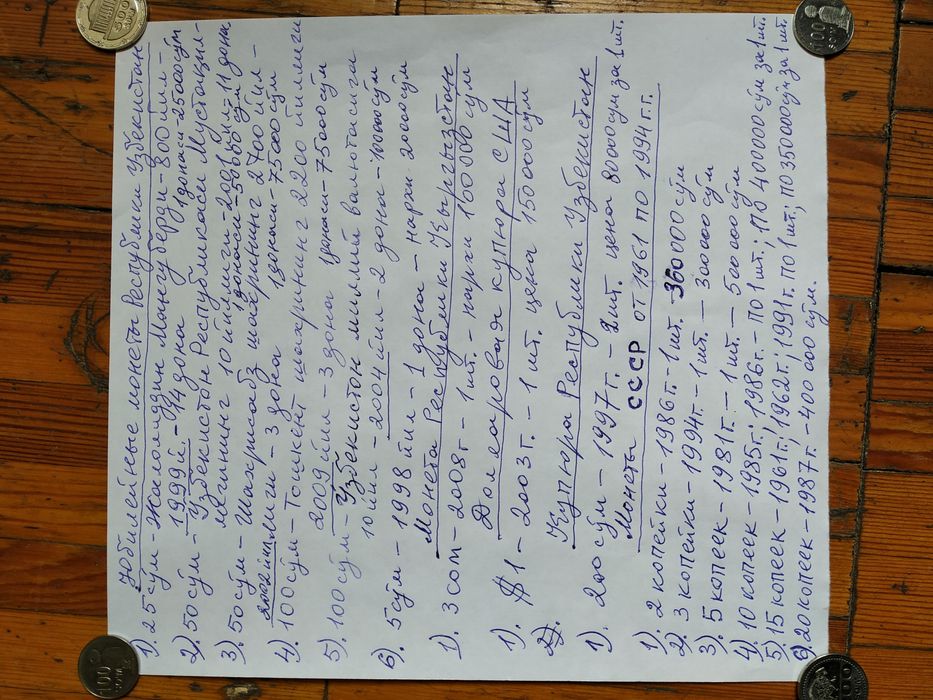 Юбилейные монеты Республики Узбекистан
1). 25 сўм - Жалолиддин Мангуберди - 800 йил -
1999й. - 14 дона 1 донаси - 25000 сўм
2). 50 сўм - Ўзбекистон Республикаси Мустақил-
лигининг 10 йиллиги - 2001 йил - 11 дона
1 донаси - 50000 сўм
3). 50 сўм - Шахрисабз шахрининг 2700 йил-
лиги - 3 дона 1 донаси - 75000 сўм
4). 100 сўм - Тошкент шахрининг 2200 йиллиги
2009 йил - 3 дона 1 донаси - 75000 сўм
5). 100 сўм - Ўзбекистон миллий валютасига
10 йил - 2004 йил - 2 дона - 100000 сўм
6). 5 сўм - 1998 йил - 1 дона - нархи 20000 сўм
Монета Республики Кыргызстан
1). 3 сом - 2008г - 1 шт. - нархи 160000 сум
Долларовая купюра США
1). $1 - 2003г. - 1 шт. цена 150000 сум
2).
Купюра Республики Узбекистан
1) 200 сўм - 1997г. - 2 шт. цена 80000 сум за 1 шт.
Монеты СССР от 1961 по 1994 г.г.
1). 2 копейки - 1986г. - 1 шт. - 360000 сўм
2). 3 копейки - 194г. - 1 шт. - 300000 сўм
3). 5 копеек - 1981г. - 1 шт. - 500000 сўм
4). 10 копеек - 1985г.; 1986г. - по 1 шт.; по 400000 сўм за 1 шт.
5). 15 копеек - 1961г.; 1962г.; 1991г. по 1 шт.; по 350000 сўм за 1 шт.
6). 20 копеек - 1987г. - 400000 сўм.
100
SO'M
500
100